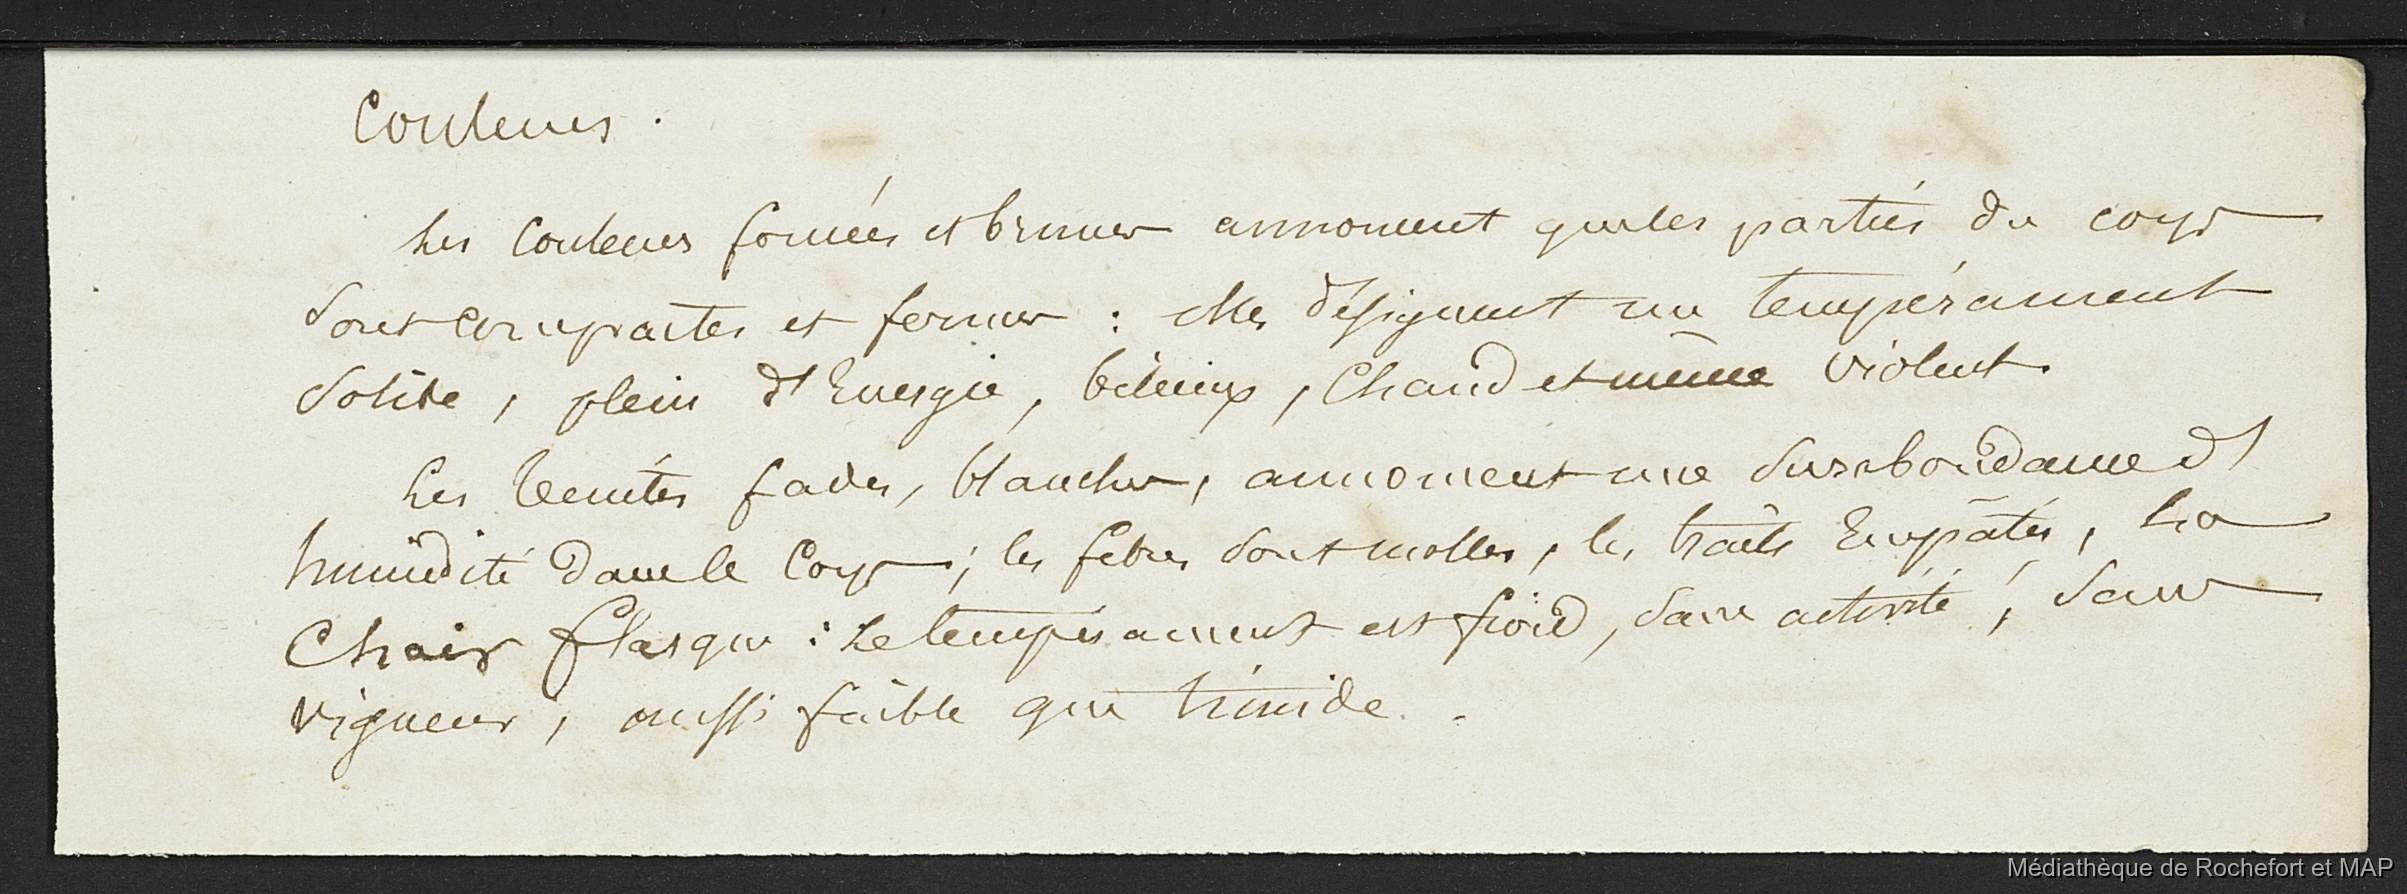 Couleurs.
Les Couleurs foncées et brunes annoncent que les parties du corps
sont compactes et fermes : elles désignent un tempérament
solide, plein d'Energie, bilieux, Chaud et même violent.
Les teintes fades, blanches, annoncent une surabondance d'
humidité dans le Corps ; les fibres sont molles, les traits Empâtés, La
Chair flasque : Le tempérament est froid, sans activité, sans
vigueur, aussi faible que timide.
Médiathèque de Rochefort et MAP